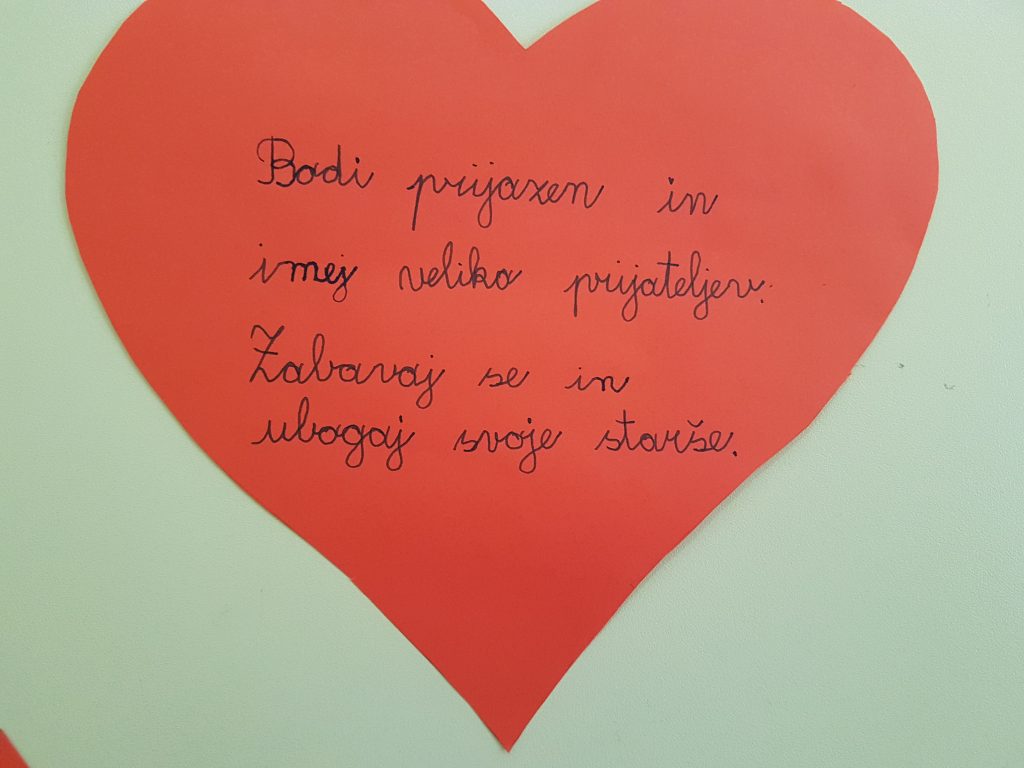 Bodi prijazen in
imej veliko prijateljev.
Zabavaj se in
ubogaj svoje starše.